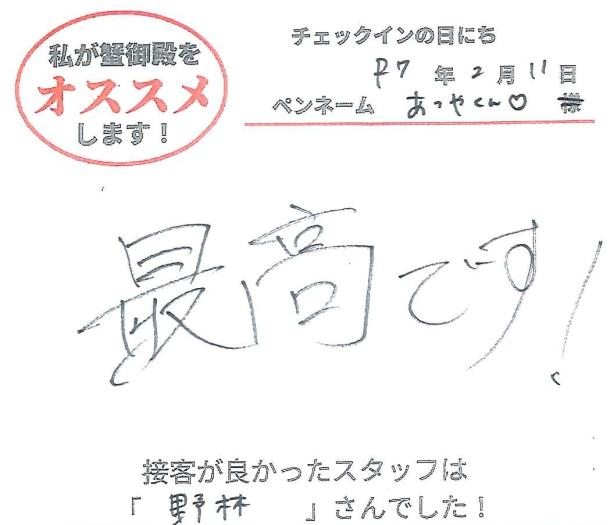 私が蟹御殿を
オススメ
します！
チェックインの日にち
R7年2月11日
ペンネーム あつやくん♡ 様
最高です！
接客が良かったスタッフは
「野林」さんでした！